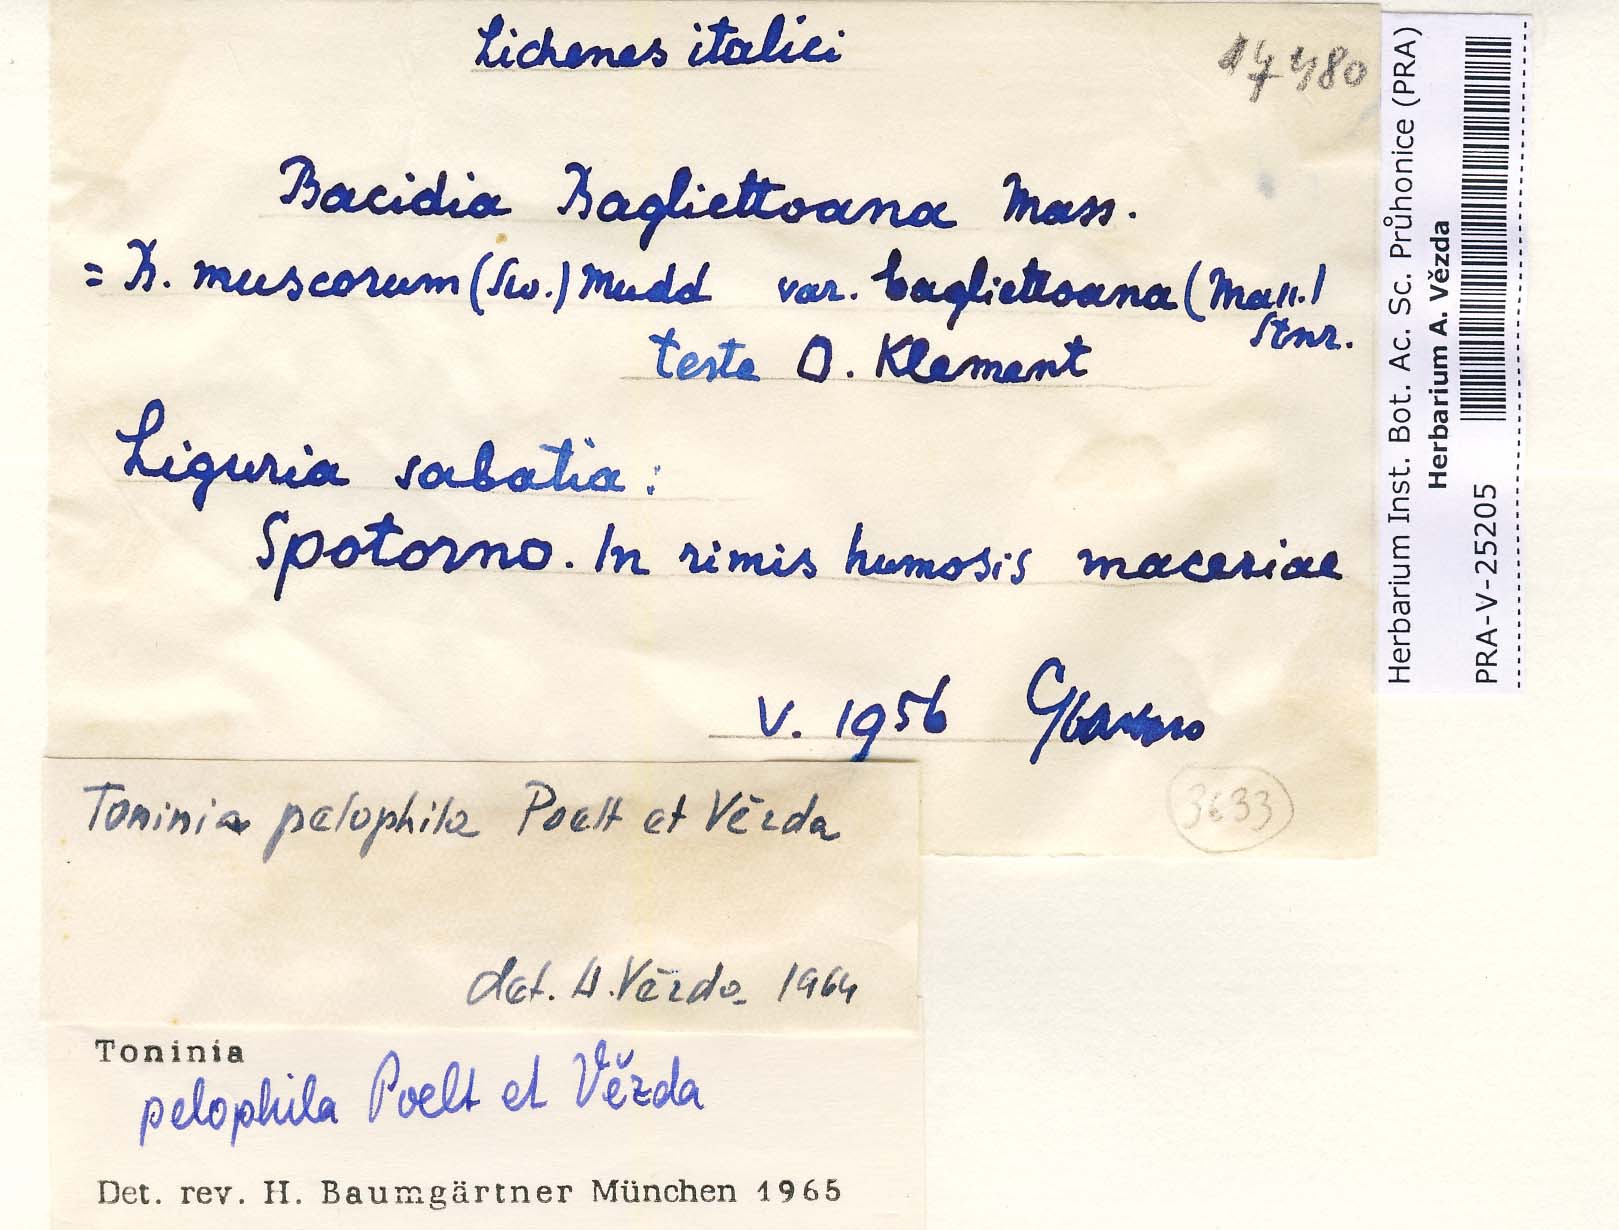 Lichenes italici
Bacidia Bagliettoana Mass.
= B. muscorum (Sw.) Mudd var. bagliettoana (Mass.)
Stnr.
teste O. Klement
Liguria sabatia:
Spotorno. In rimis humosis maceriae
V. 1956
3633
Toninia pelophila Poelt et Vězda
det. A. Vězda 1964
Toninia
pelophila Poelt et Vězda
Det. rev. H. Baumgärtner München 1965
Herbarium Inst. Bot. Ac. Sc. Průhonice (PRA)
Herbarium A. Vězda
PRA-V-25205